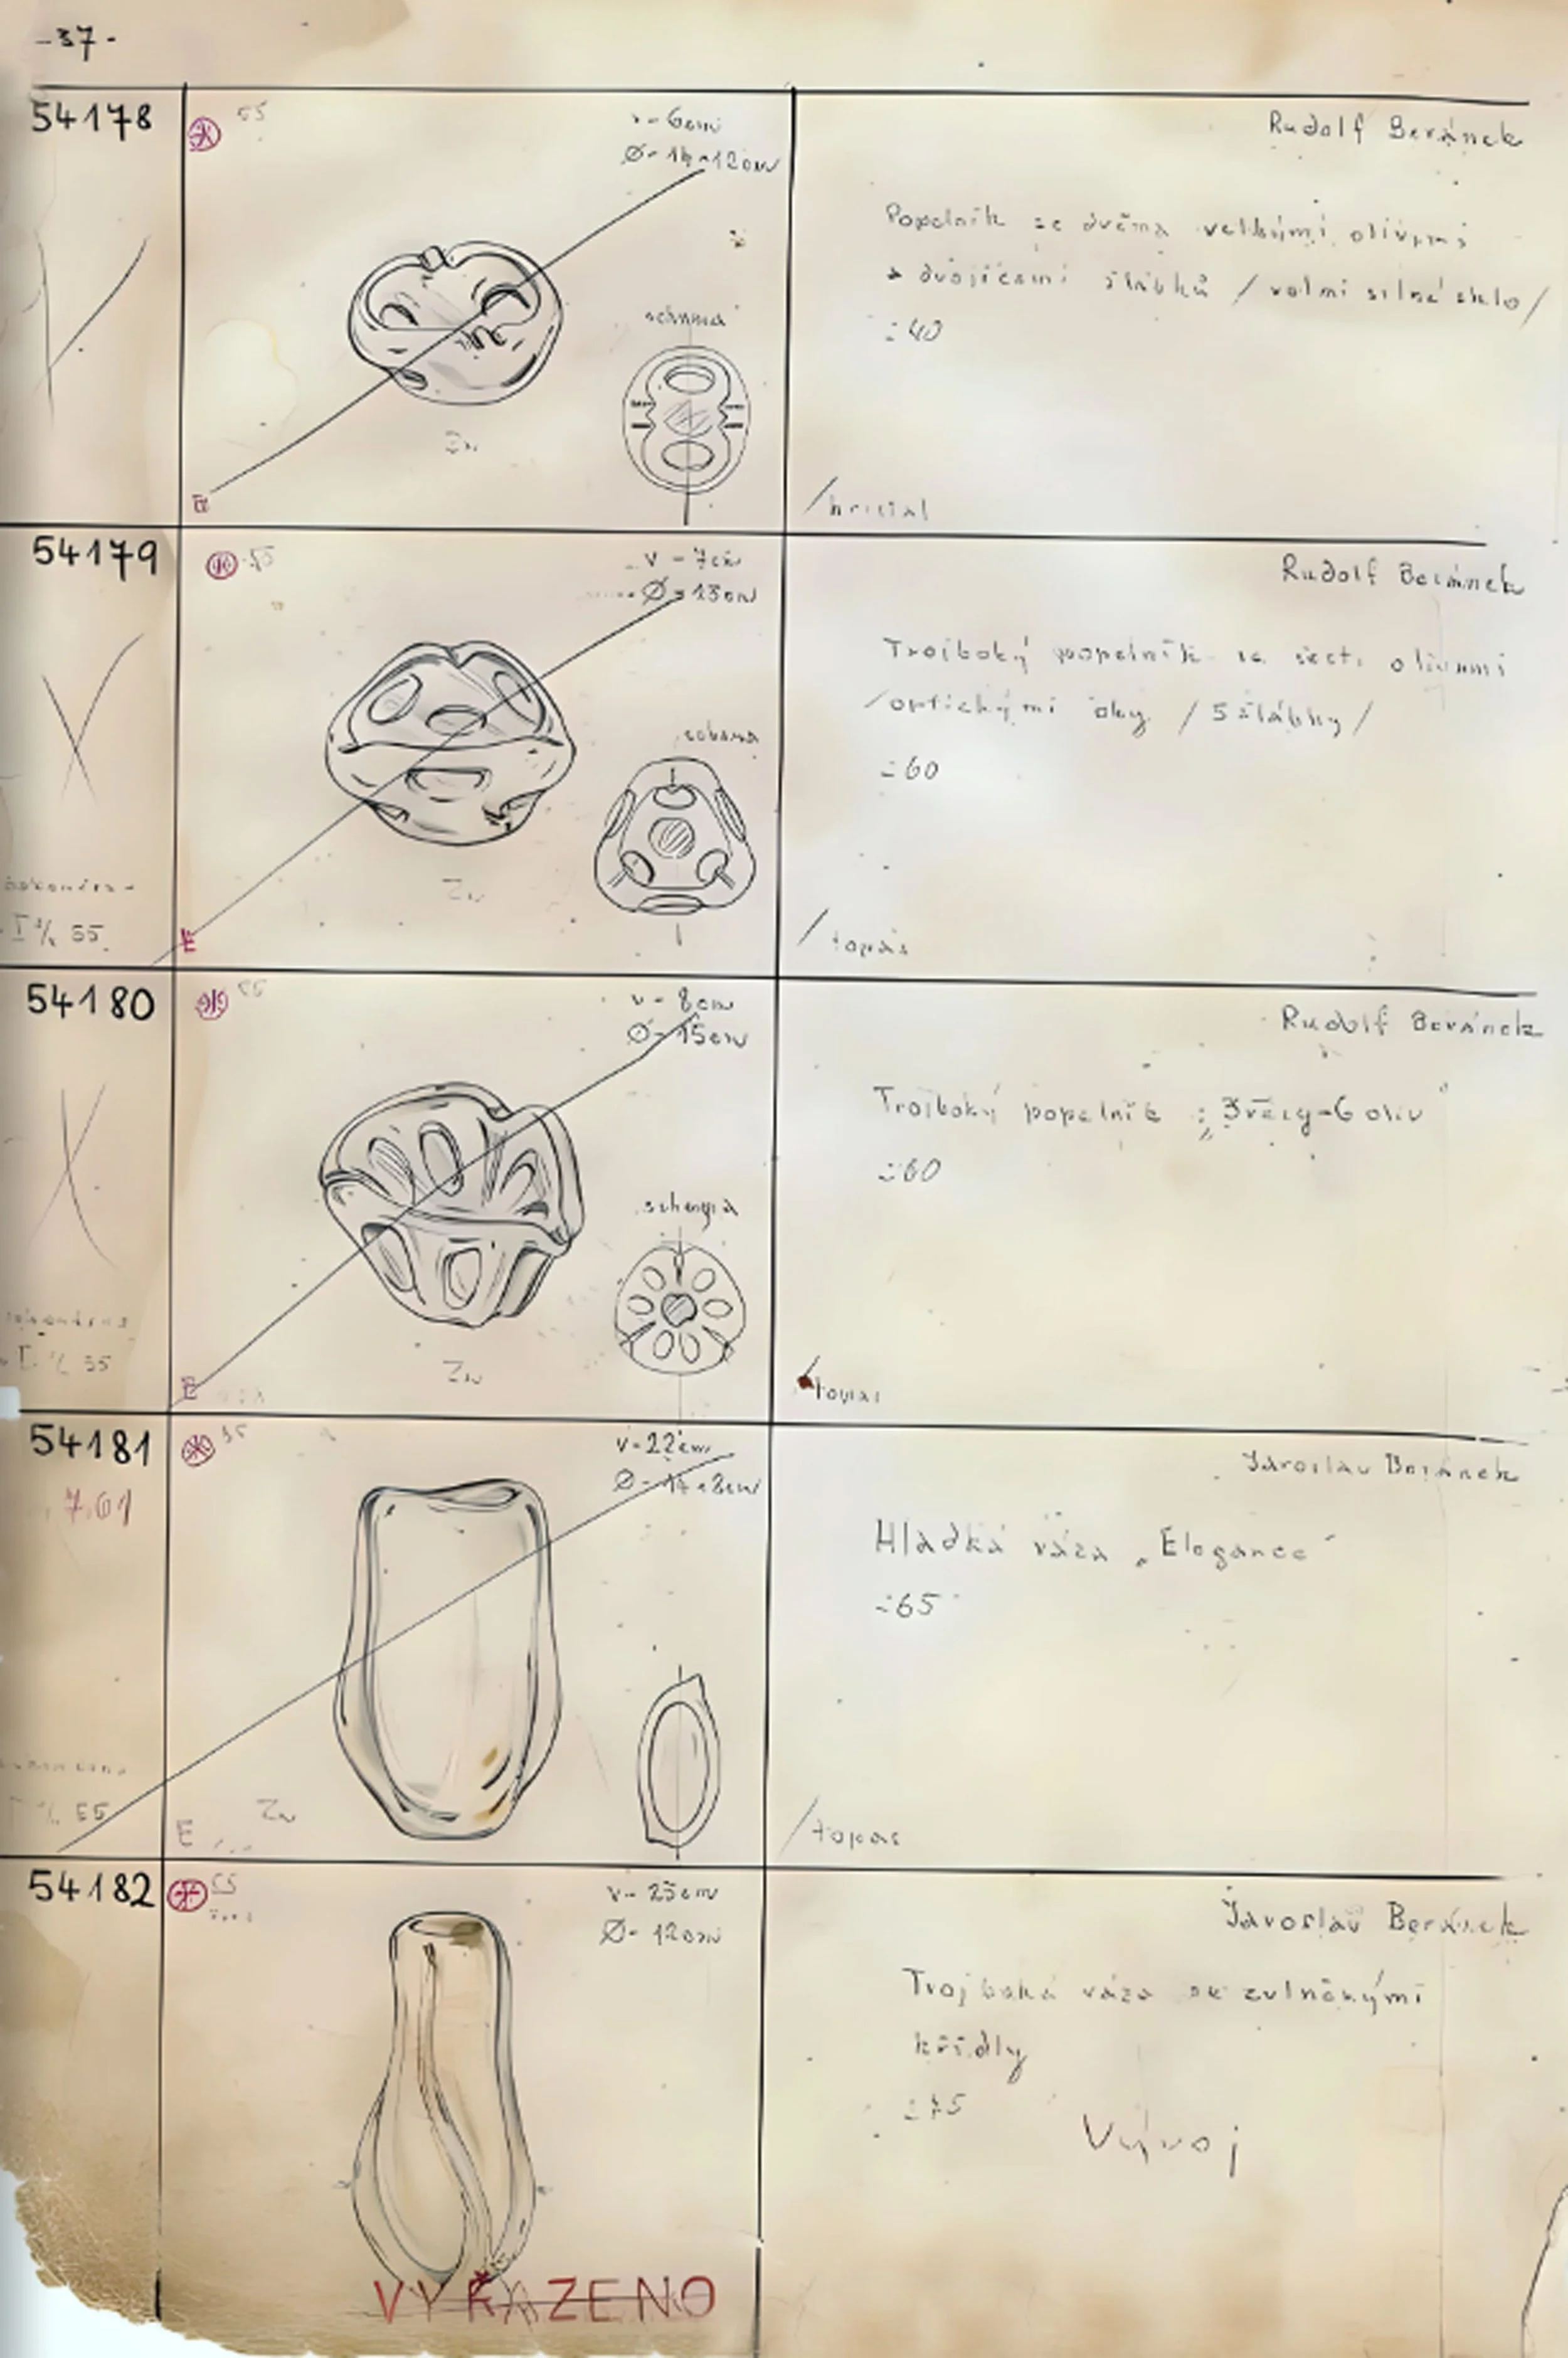 -37-
54178
55
v-6cm
Ø-14×12cm
Rudolf Beránek
Popelník se dvěma velkými olivami
a dvojicemi žlábků /velmi silné sklo/
=40
schema
Zn
E
/kristal
54179
55
v-7cm
Ø-13cm
Rudolf Beránek
Trojboký popelník se šesti olivami
/optickými oky /5 žlábky/
=60
schema
Zn
I 1/2 55
E
/topas
54180
55
v-8cm
Ø-15cm
Rudolf Beránek
Trojboký popelník „3věcy-6 oliv"
=60
schema
Zn
55
E
/topas
54181
55
7.61
v-22cm
Jaroslav Beránek
Hladká váza „Elegance"
=65
55
E
Zn
/topas
54182
55
v-25cm
Ø-12cm
Jaroslav Beránek
Trojboká váza se zvlněnými
křídly
=75
Vývoj
VYŘAZENO